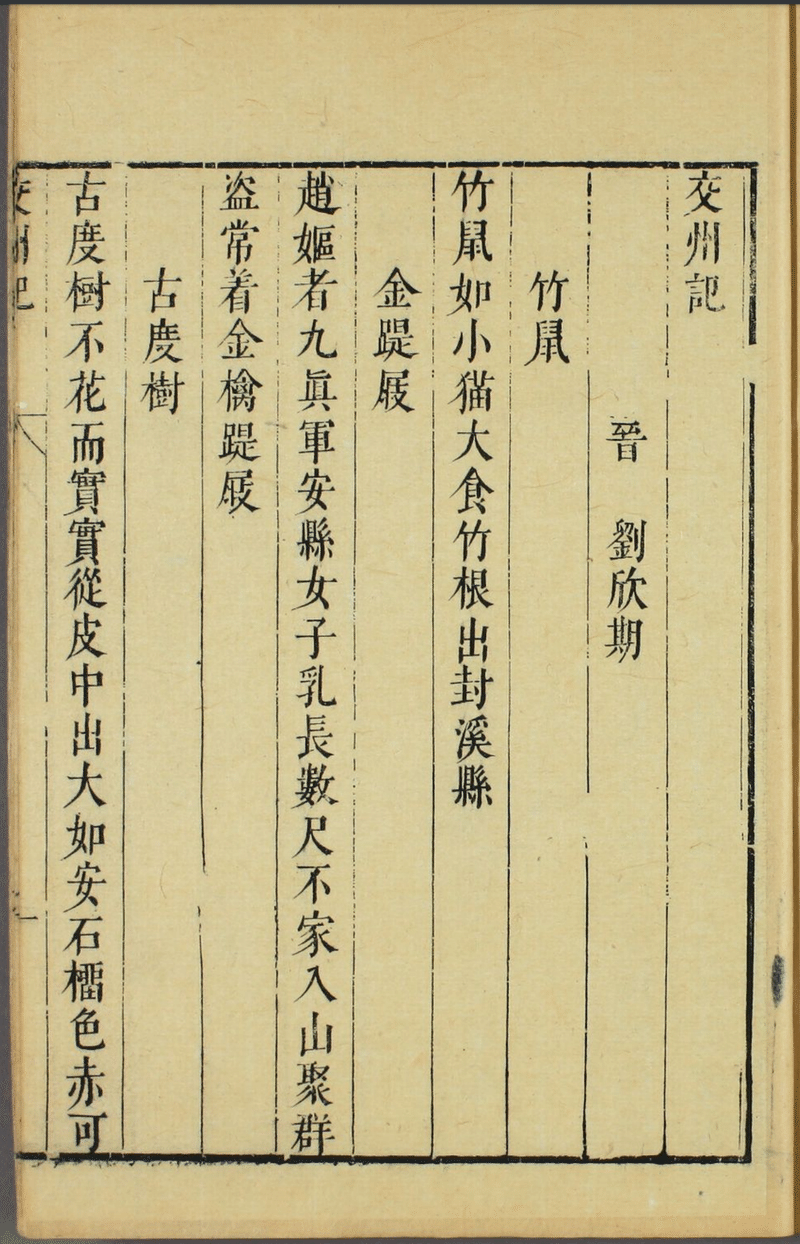 交州記
晉 劉欣期
竹鼠
竹鼠如小猫大食竹根出封溪縣
金踶屐
趙嫗者九眞軍安縣女子乳長數尺不家入山聚群
盗常着金擒踶屐
古度樹
古度樹不花而實實從皮中出大如安石橊色赤可
交州記
一